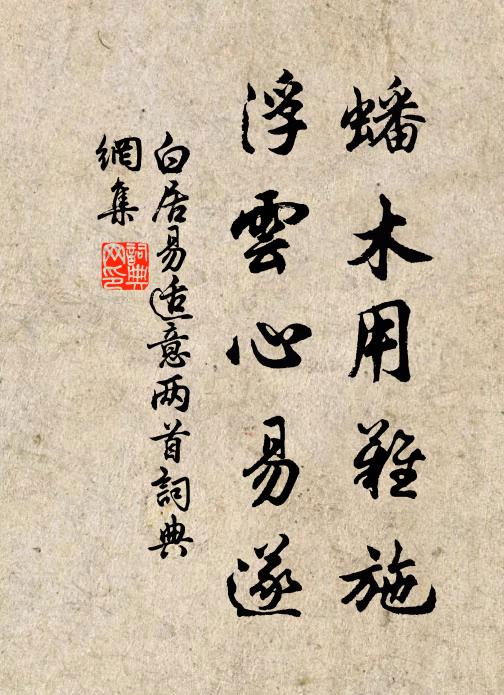 蟠木用難施
浮雲心易遂
白居易适意两首詞典
網集
詞典
网印